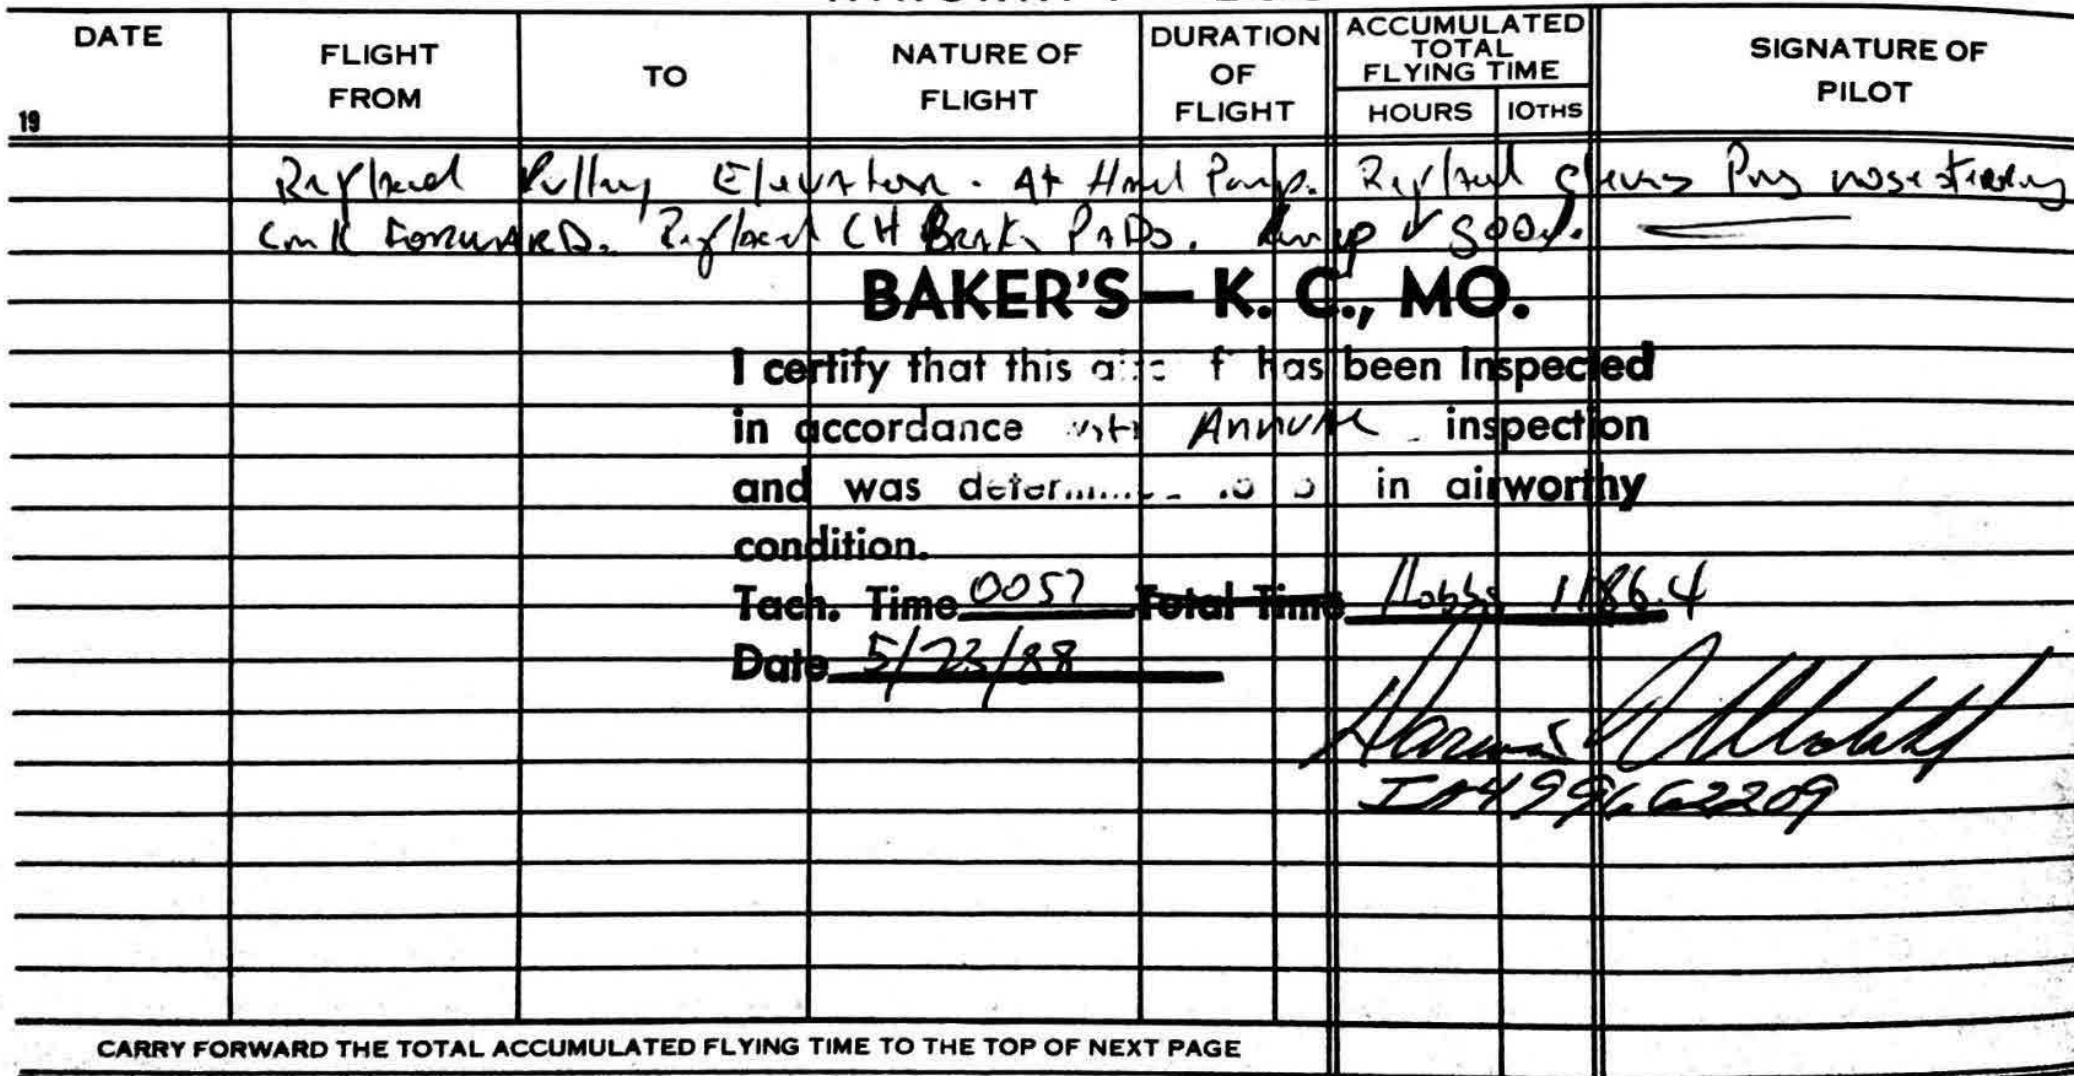 DATE
19
FLIGHT
FROM
TO
NATURE OF
FLIGHT
DURATION
OF
FLIGHT
ACCUMULATED
TOTAL
FLYING TIME
HOURS 10THS
SIGNATURE OF
PILOT
Replaced Pulley Elevator. At Hand Pump. Replaced Clevis Pin nose steering
FORWARD. Replaced LH Brake PADS. Runup good.
BAKER'S — K. C., MO.
I certify that this has been Inspected
in accordance with Annual inspection
and was in airworthy
condition.
Tach. Time 0057 Total Time Hobbs 1186.4
Date 5/23/88
IA499662209
CARRY FORWARD THE TOTAL ACCUMULATED FLYING TIME TO THE TOP OF NEXT PAGE